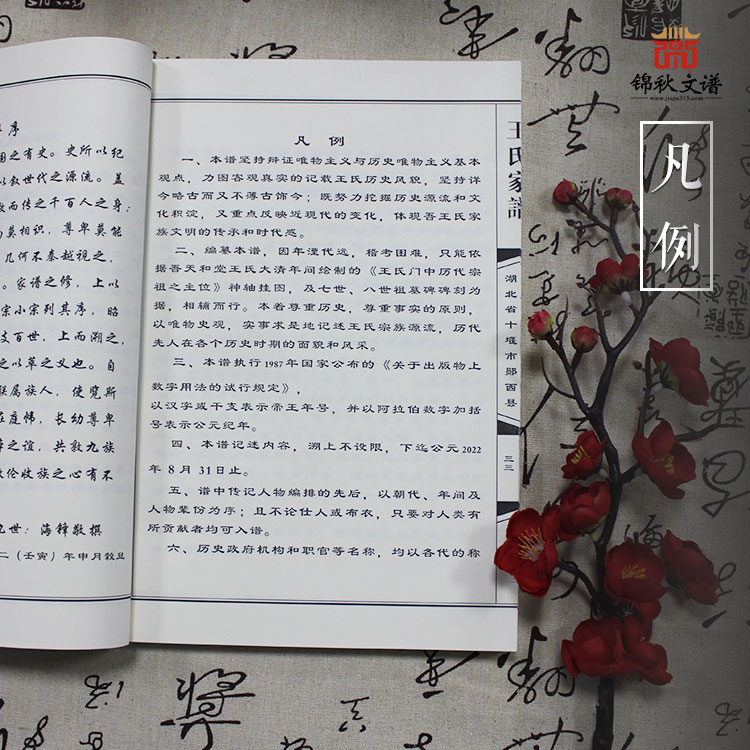 锦秋文谱
www.jiapu315.com
凡例
序
国之有史。史所以纪
以叙世代之源流。盖
散而传之千百人之身；
莫相识，尊卑莫能
几何不秦越视之，
。家谱之修，上以
宗小宗列其序，昭
支百世，上而溯之，
之以草之义也。自
联属族人，使览斯
在庭帏，长幼尊卑
之谊，共敦九族
敦伦收族之心有不
九世：海锋敬撰
二（壬寅）年申月榖旦
凡 例
一、本谱坚持辩证唯物主义与历史唯物主义基本
观点，力图客观真实的记载王氏历史风貌，坚持详
今略古而又不薄古饰今；既努力挖掘历史源流和文
化积淀，又重点反映近现代的变化，体现吾王氏家
族文明的传承和时代感。
二、编纂本谱，因年湮代远，稽考困难，只能依
据吾天和堂王氏大清年间绘制的《王氏门中历代宗
祖之主位》神轴挂图，及七世、八世祖墓碑碑刻为
据，相辅而行。本着尊重历史，尊重事实的原则，
以唯物史观，实事求是地记述王氏宗族源流，历代
先人在各个历史时期的面貌和风采。
三、本谱执行1987年国家公布的《关于出版物上
数字用法的试行规定》，
以汉字或干支表示帝王年号，并以阿拉伯数字加括
号表示公元纪年。
四、本谱记述内容，溯上不设限，下迄公元2022
年8月31日止。
五、谱中传记人物编排的先后，以朝代、年间及
人物辈份为序；且不论仕人或布衣，只要对人类有
所贡献者均可入谱。
六、历史政府机构和职官等名称，均以各代的称
王氏家譜
湖北省十堰市郧西县
三三